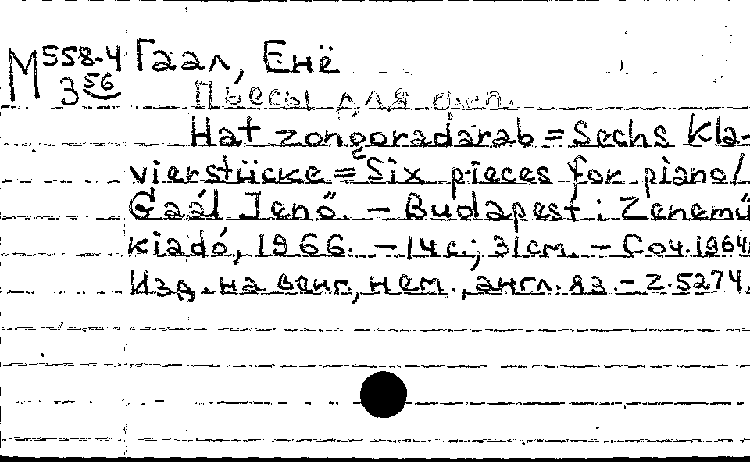 М558-4 Гаал, Енё
3 56 Пьесы для ф.п.
Hat zongoradarab = Sechs Kla-
vierstücke = Six pieces for piano/
Gaál Jenő. – Budapest: Zenemű
kiadó, 1966. – 14 с.; 31 см. – Соч. 1964
Изд. на венг., нем., англ. яз. – Z.5274.